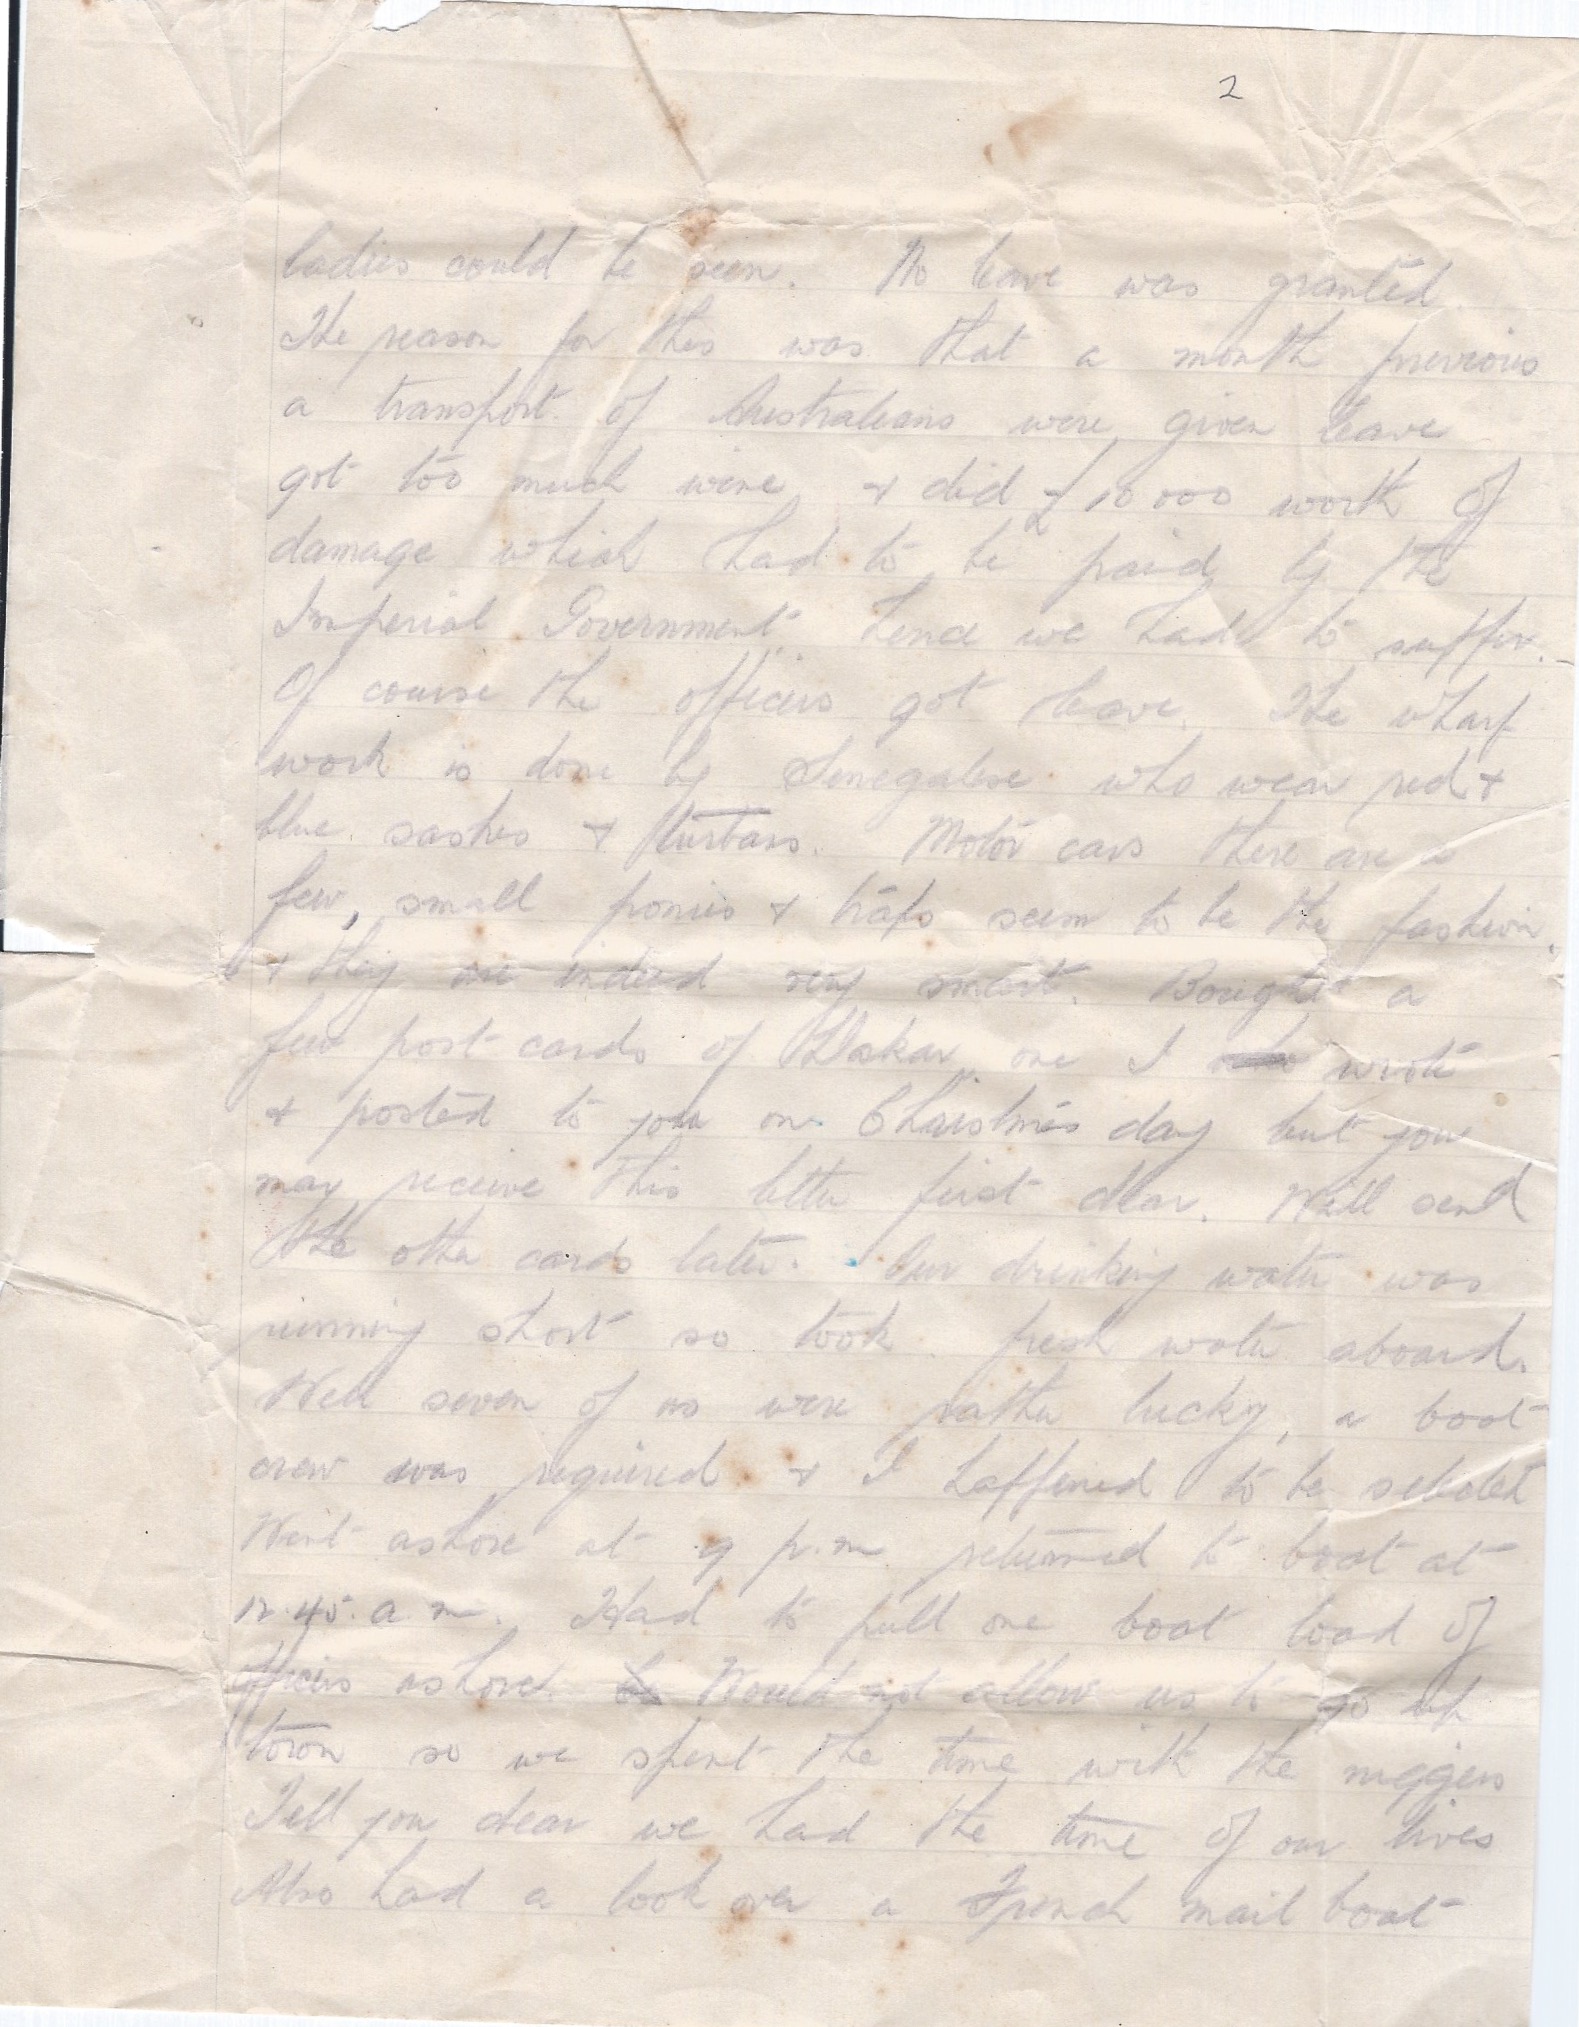 2
ladies could be seen. No leave was granted.
The reason for this was that a month previous
a transport of Australians were given leave
got too much wine & did £10 000 worth of
damage which had to be paid by the
Imperial Government. Hence we had to suffer.
Of course the officers got leave. The wharf
work is done by Senegalese who wear red &
blue sashes & turbans. Motor cars there are a
few, small ponies & traps seem to be the fashion,
& they are indeed very smart. Bought a
few post cards of Dakar one I wrote
& posted to you on Christmas day but you
may receive this letter first dear. Will send
the other cards later. Our drinking water was
running short so took fresh water aboard.
Well seven of us were rather lucky, a boat
crew was required & I happened to be selected
Went ashore at 9 p.m. returned to boat at
12.45. a.m. Had to pull one boat load of
officers ashore. Would not allow us to go up
town so we spent the time with the niggers
Tell you dear we had the time of our lives
Also had a look over a French mail boat